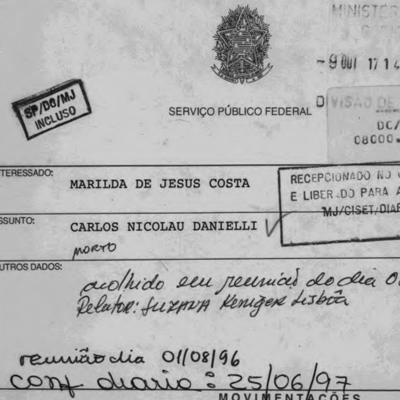 MINISTÉR
- 9 OUT 17 14
SP/DG/MJ
INCLUSO
SERVIÇO PÚBLICO FEDERAL
DIVISÃO DE
DC/
08000.
TERESSADO:
MARILDA DE JESUS COSTA
RECEPCIONADO NO
E LIBER DO PARA A
MJ/CISET/DIA
SSUNTO:
CARLOS NICOLAU DANIELLI
MORTO
UTROS DADOS:
acolhido em reunião do dia 0
Relator: SUZANA Keniger Lisbôa
reunião dia 01/08/96
conf diario: 25/06/97
MOVIMENTAÇÕES